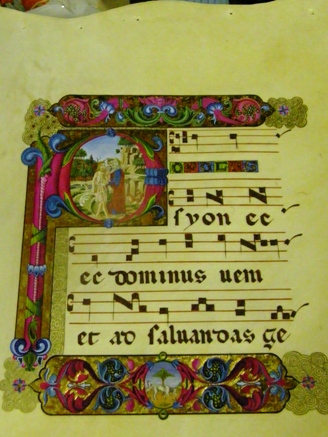 syon ec
ce dominus ueni
et ad saluandas ge